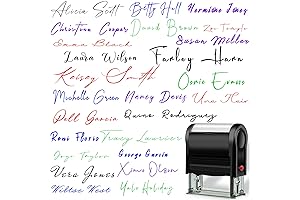 Alicia Scott Betty Hall Hermione Jones
Christina Cooper David Brown Zoe Temple
Emma Black Susan Miller
Laura Wilson Farley Horn
Kelsey Smith Osric Evans
Michelle Green Nancy Davis Una Khir
Pell Garcia Quinn Rodriguez
René Flores Tracy Laurier
Jaye Taylor George Garcia
Vera Jones Ximo Olson
Webloc West Yule Holiday